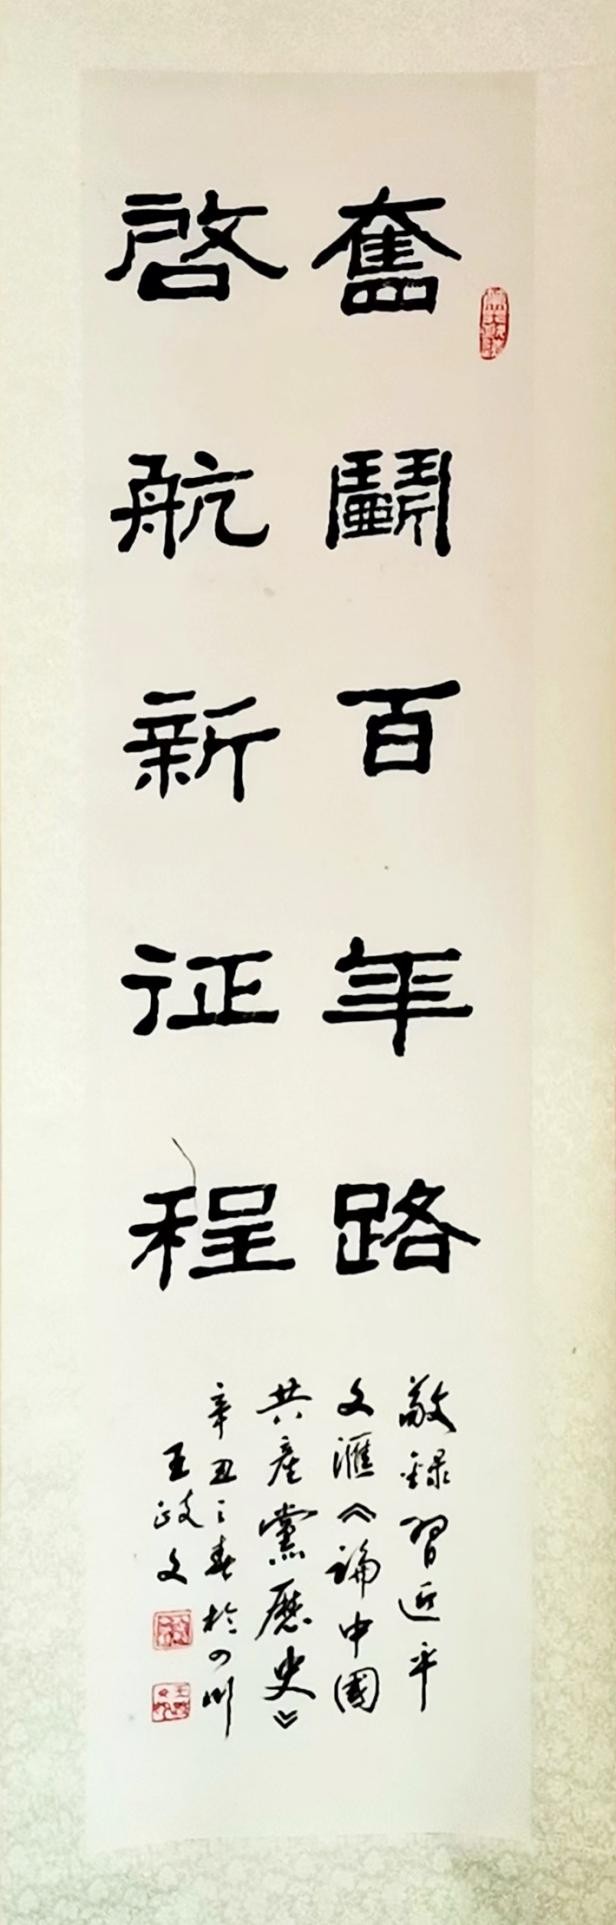 奮鬭百年路
啓航新征程
敬錄習近平
文滙《論中國
共產黨歷史》
辛丑之春於四川
王政文